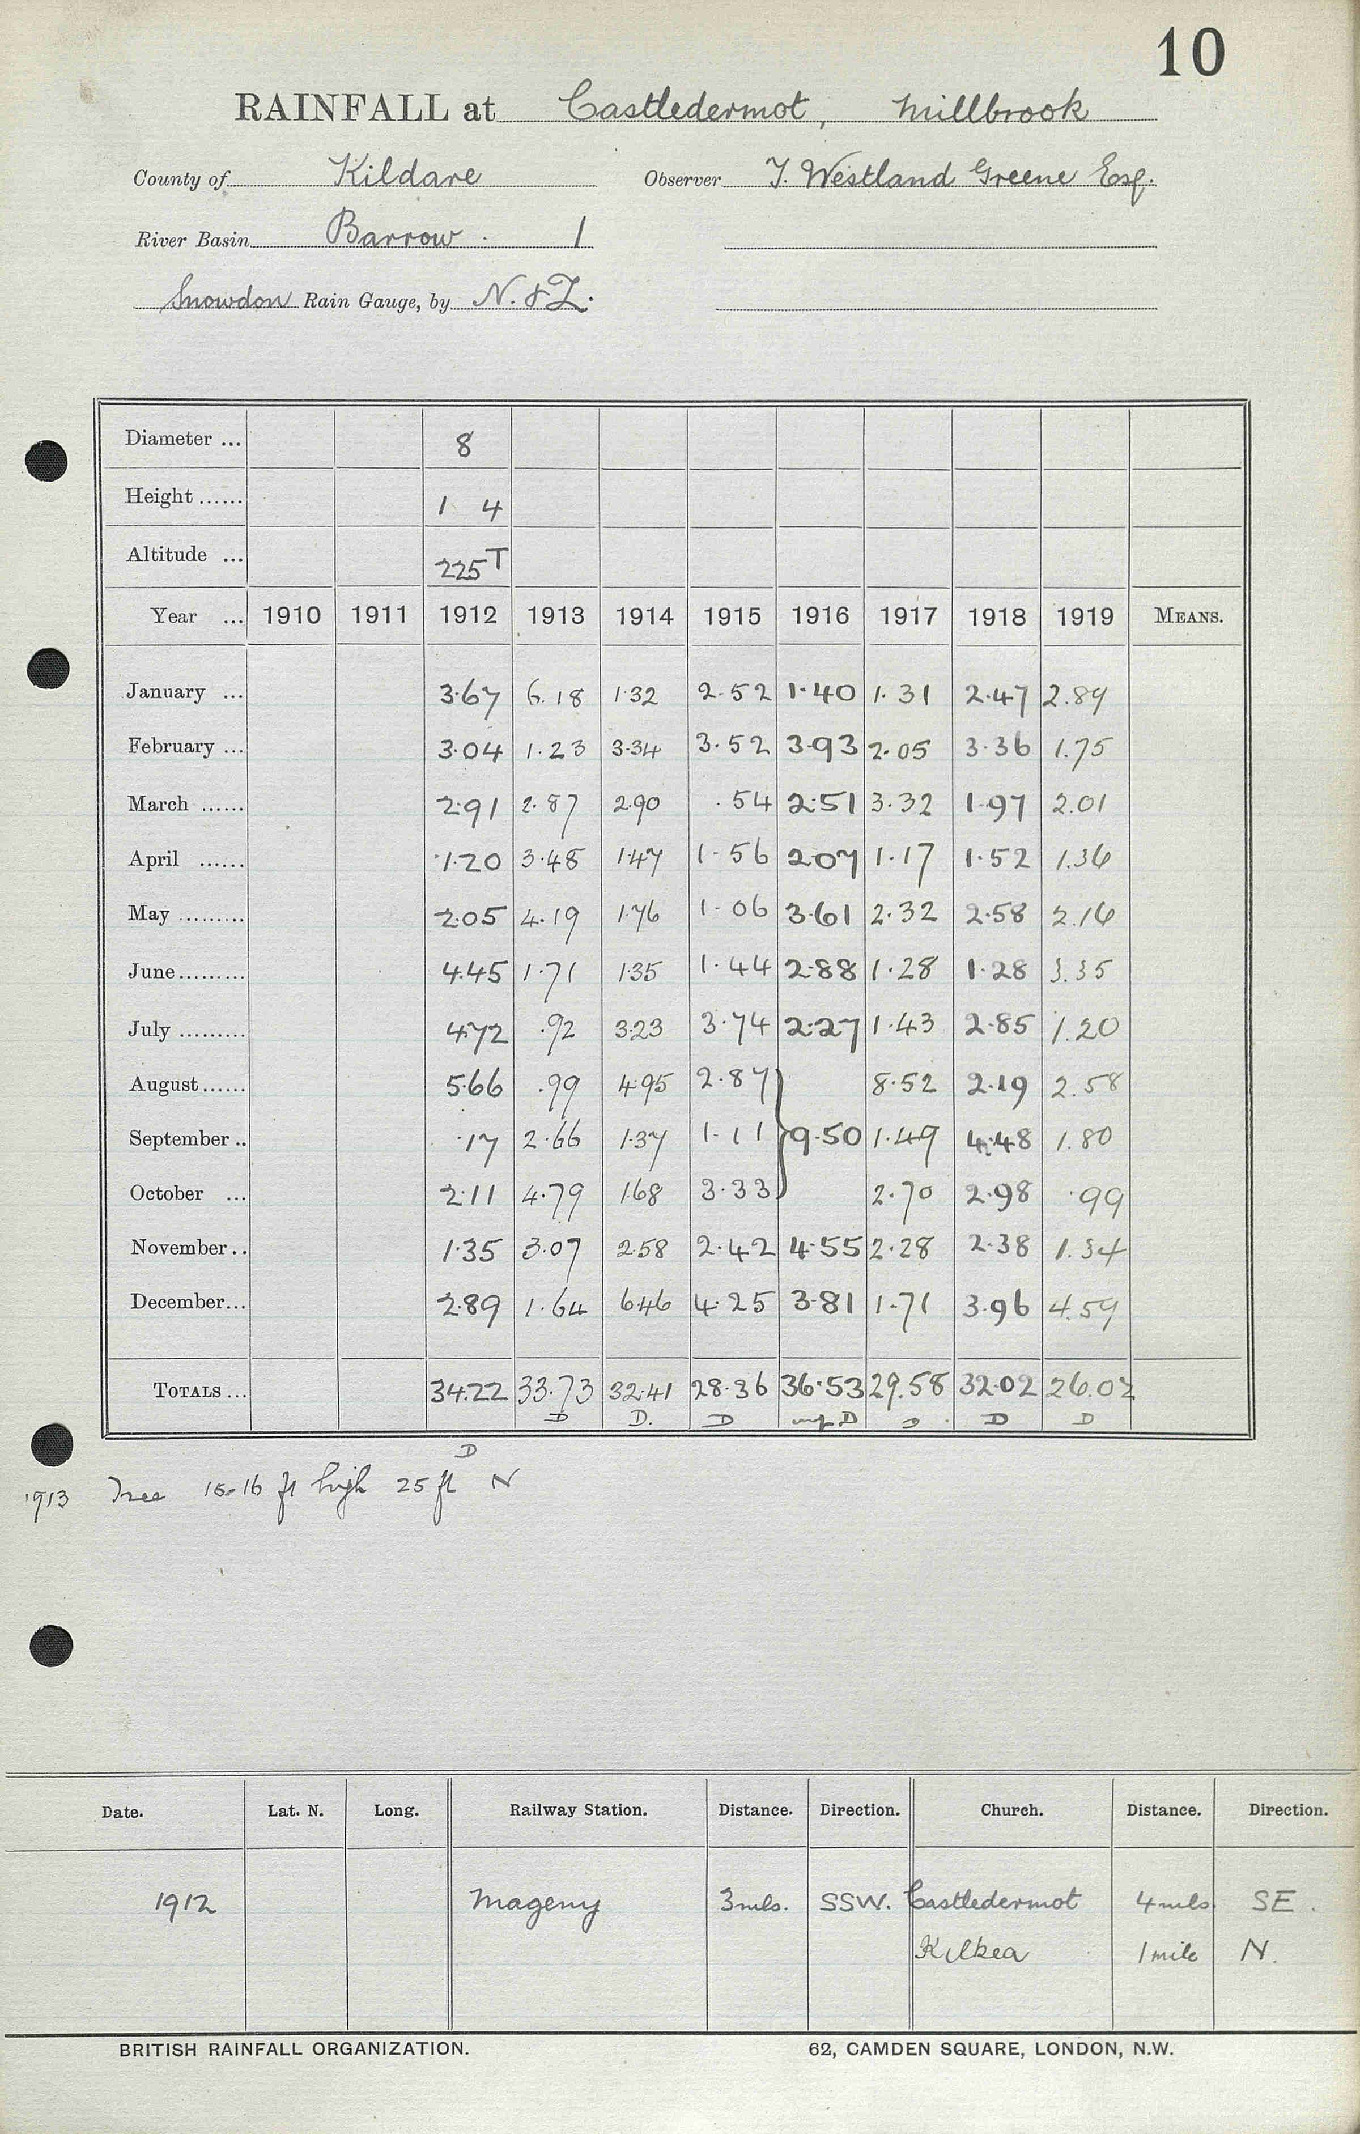 10
RAINFALL at Castledermot, Millbrook
County of Kildare Observer T. Westland Greene Esq.
River Basin Barrow. 1
Snowdon Rain Gauge, by N. & Z.
Diameter ... 8
Height ...... 1 4
Altitude ... 225 T
Year ... 1910 1911 1912 1913 1914 1915 1916 1917 1918 1919 MEANS.
January ... 3.67 6.18 1.32 2.52 1.40 1.31 2.47 2.89
February ... 3.04 1.23 3.34 3.52 3.93 2.05 3.36 1.75
March ...... 2.91 2.87 2.90 .54 2.51 3.32 1.97 2.01
April ...... 1.20 3.48 1.47 1.56 2.07 1.17 1.52 1.36
May ......... 2.05 4.19 1.76 1.06 3.61 2.32 2.58 2.16
June ......... 4.45 1.71 1.35 1.44 2.88 1.28 1.28 3.35
July ......... 4.72 .92 3.23 3.74 2.27 1.43 2.85 1.20
August ...... 5.66 .99 4.95 2.87 8.52 2.19 2.58
September .. .17 2.66 1.37 1.11 } 9.50 1.49 4.48 1.80
October ... 2.11 4.79 1.68 3.33 2.70 2.98 .99
November .. 1.35 3.07 2.58 2.42 4.55 2.28 2.38 1.34
December ... 2.89 1.64 6.46 4.25 3.81 1.71 3.96 4.59
TOTALS ... 34.22 33.73 32.41 28.36 36.53 29.58 32.02 26.02
D D. D D D D D
D
1913 Tree 15-16 ft high 25 ft N
Date. Lat. N. Long. Railway Station. Distance. Direction. Church. Distance. Direction.
1912 Mageny 3 mls. SSW. Castledermot 4 mls. SE.
Kilkea 1 mile N.
BRITISH RAINFALL ORGANIZATION. 62, CAMDEN SQUARE, LONDON, N.W.